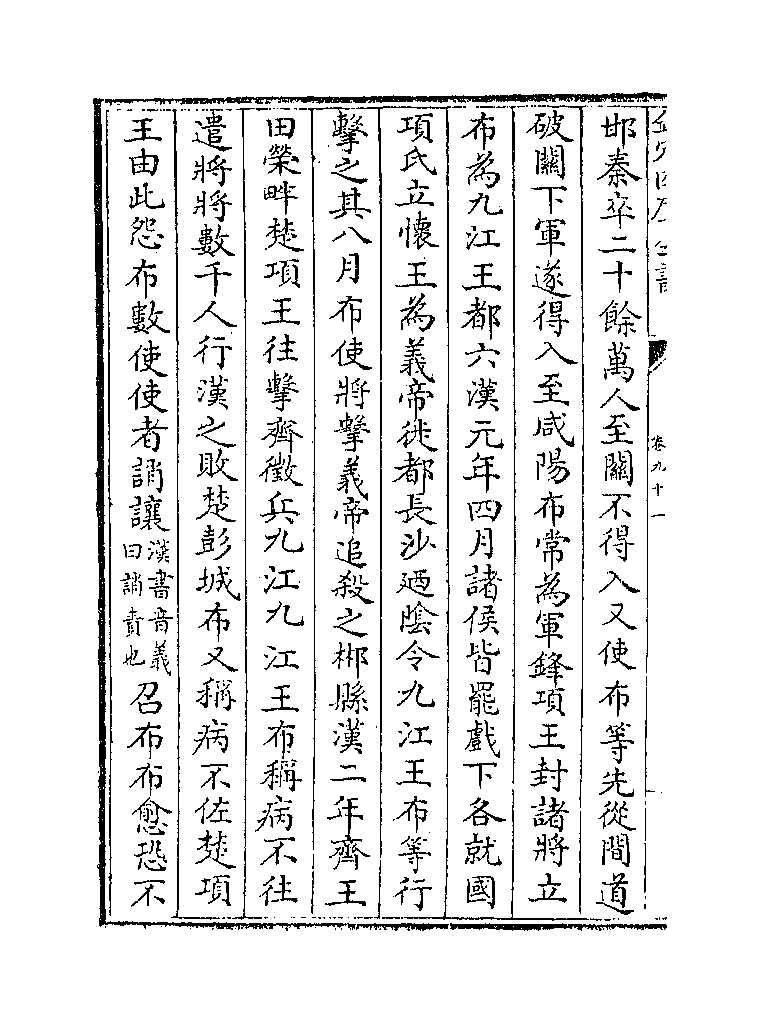 欽定四庫全書
卷九十一
邯秦卒二十餘萬人至關不得入又使布等先從間道
破關下軍遂得入至咸陽布常為軍鋒項王封諸將立
布為九江王都六漢元年四月諸侯皆罷戲下各就國
項氏立懷王為義帝徙都長沙廼陰令九江王布等行
擊之其八月布使將擊義帝追殺之郴縣漢二年齊王
田榮畔楚項王往擊齊徵兵九江九江王布稱病不往
遣將將數千人行漢之敗楚彭城布又稱病不佐楚項
王由此怨布數使使者誚讓漢書音義曰誚責也召布布愈恐不